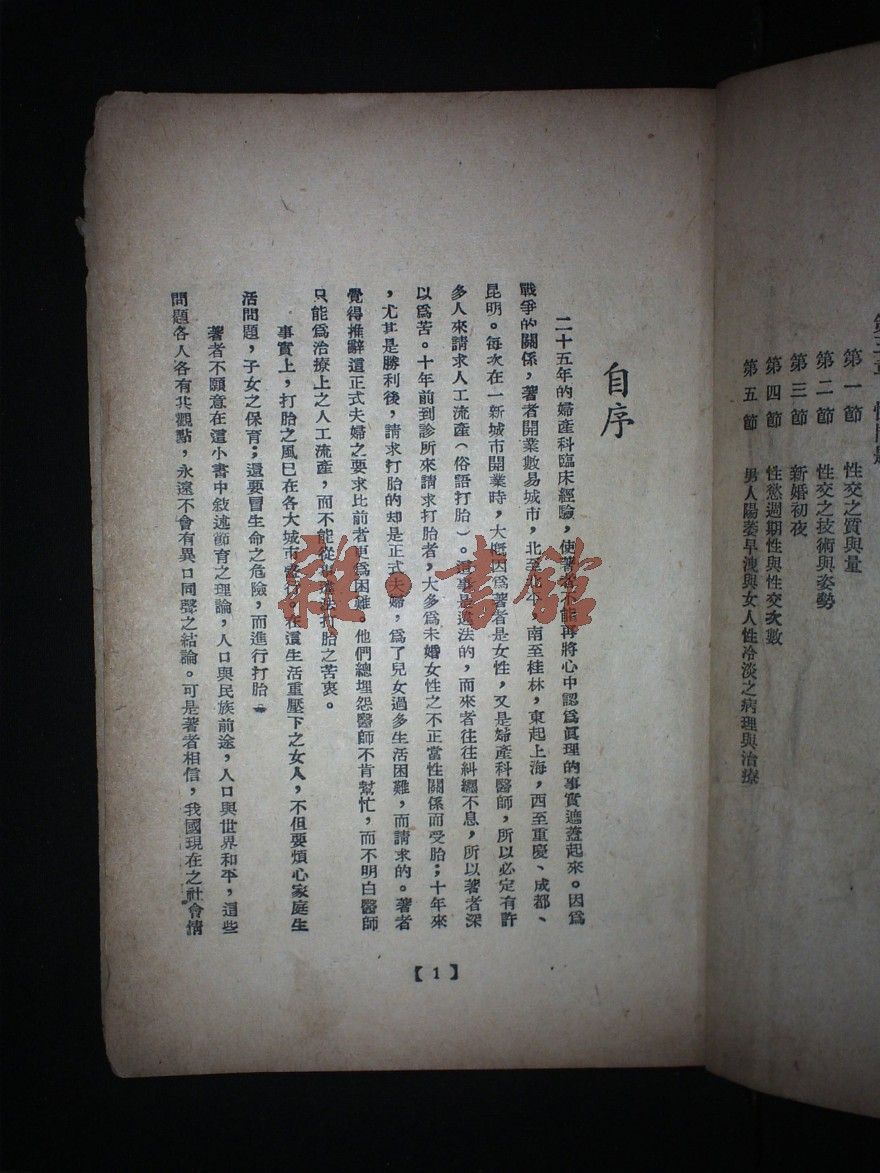 第一節　性交之質與量
第二節　性交之技術與姿勢
第三節　新婚初夜
第四節　性慾週期性與性交次數
第五節　男人陽萎早洩與女人性冷淡之病理與治療
自序
二十五年的婦產科臨床經驗，使著者不能再將心中認爲眞理的事實遮蓋起來。因爲
戰爭的關係，著者開業數易城市，北至北平，南至桂林，東起上海，西至重慶、成都、
昆明。每次在一新城市開業時，大概因爲著者是女性，又是婦產科醫師，所以必定有許
多人來請求人工流產（俗語打胎）。這事是違法的，而來者往往糾纏不息，所以著者深
以爲苦。十年前到診所來請求打胎者，大多爲未婚女性之不正當性關係而受胎；十年來
，尤其是勝利後，請求打胎的却是正式夫婦，爲了兒女過多生活困難，而請求的。著者
覺得推辭這正式夫婦之要求比前者更爲困難。他們總埋怨醫師不肯幫忙，而不明白醫師
只能爲治療上之人工流產，而不能從事違法打胎之苦衷。
事實上，打胎之風已在各大城市盛行。在這生活重壓下之女人，不但要煩心家庭生
活問題，子女之保育；還要冒生命之危險，而進行打胎。
著者不願意在這小書中敍述節育之理論，人口與民族前途，人口與世界和平，這些
問題各人各有其觀點，永遠不會有異口同聲之結論。可是著者相信，我國現在之社會情
【1】
雜·書館